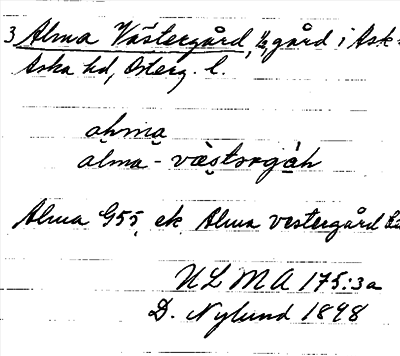 3 Alma Västergård, ½ gård i Ask
Aska hd, Österg. l.
ahma
alma - vàstorgàh
Alma G55, ek Alma vestergård
ULMA 175:3a
D. Nylund 1898